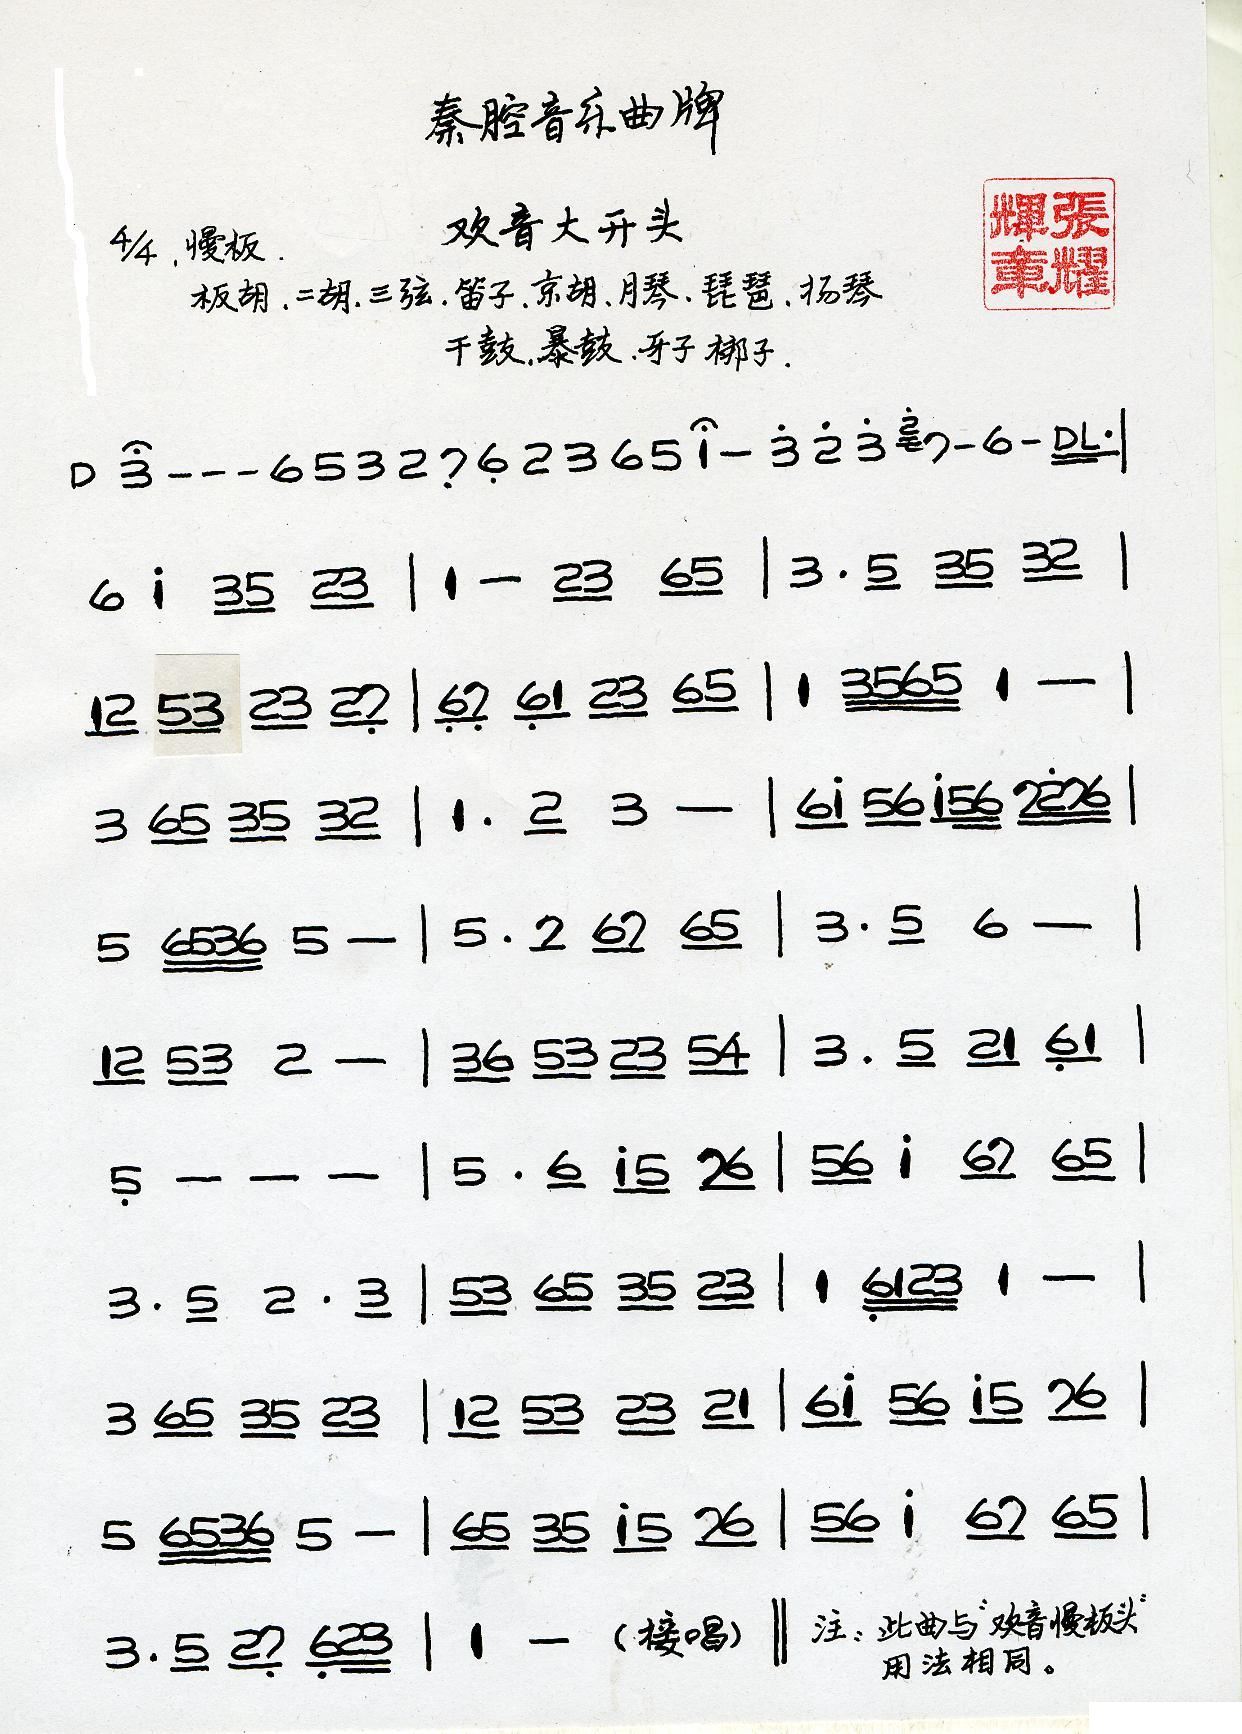 秦腔音乐曲牌
欢音大开头
4/4、慢板.
張耀輝章
板胡、二胡、三弦、笛子、京胡、月琴、琵琶、杨琴
干鼓、暴鼓、牙子梆子.
D 3̇ - - - 6 5 3 2 7̣ 6̣ 2 3 6 5 i - 3̇ 2̇ 3̇ 2̇ 7 - 6 - DL·|
6 i 35 23 | 1 - 23 65 | 3 · 5 35 32 |
12 53 23 27̣ | 6̣7̣ 6̣1 23 65 | 1 3565 1 — |
3 65 35 32 | 1 · 2 3 — | 6i 56 i56 72̇76 |
5 6536 5 — | 5 · 7 67 65 | 3 · 5 6 — |
12 53 2 — | 36 53 23 54 | 3 · 5 21 6̣1 |
5̣ — — — | 5 · 6 i5 76 | 56 i 67 65 |
3 · 5 2 · 3 | 53 65 35 23 | 1 6̣123 1 — |
3 65 35 23 | 12 53 23 21 | 6i 56 i5 76 |
5 6536 5 — | 65 35 i5 76 | 56 i 67 65 |
3 · 5 27̣ 6̣23 | 1 — (接唱) ‖ 注：此曲与"欢音慢板头"
用法相同。